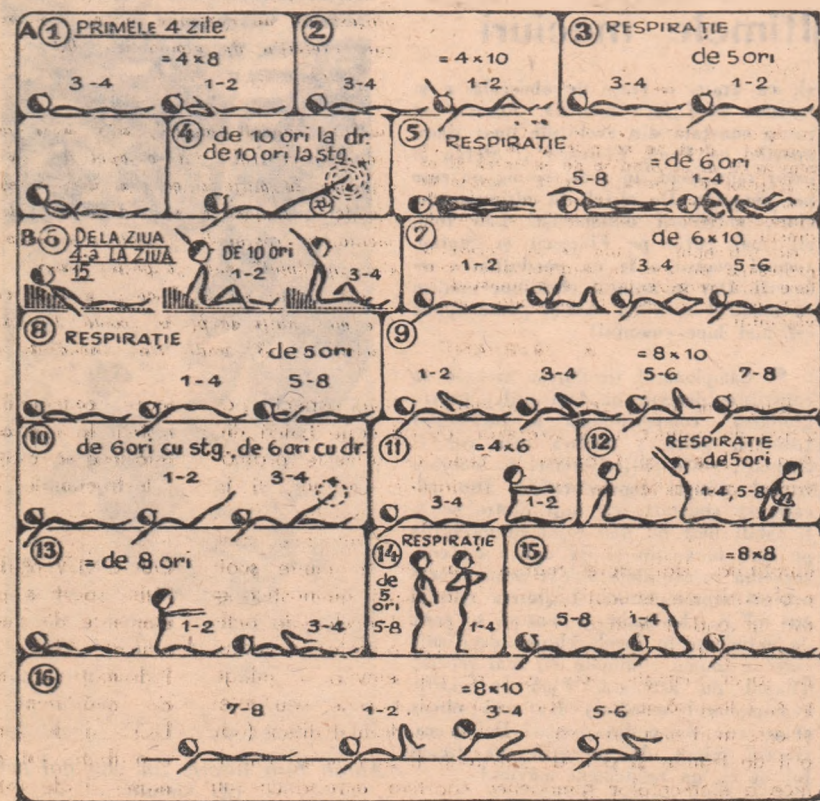 A 1 PRIMELE 4 zile
= 4 x 8
3-4 1-2
2
= 4 x 10
3-4 1-2
3 RESPIRAȚIE
de 5 ori
3-4 1-2
4 de 10 ori la dr.
de 10 ori la stg.
5 RESPIRAȚIE
= de 6 ori
5-8 1-4
B 6 DE LA ZIUA
4-a LA ZIUA
15
DE 10 ORI
1-2
3-4
7
de 6 x 10
1-2 3-4 5-6
8 RESPIRAȚIE
de 5 ori
1-4 5-8
9
= 8 x 10
1-2 3-4 5-6 7-8
10 de 6 ori cu stg., de 6 ori cu dr.
1-2 3-4
11
= 4 x 6
3-4 1-2
12 RESPIRAȚIE
de 5 ori
1-4, 5-8
13 = de 8 ori
1-2 3-4
14 RESPIRAȚIE
de
5
ori
5-8 1-4
15
= 8 x 8
5-8 1-4
16
= 8 x 10
7-8 1-2 3-4 5-6